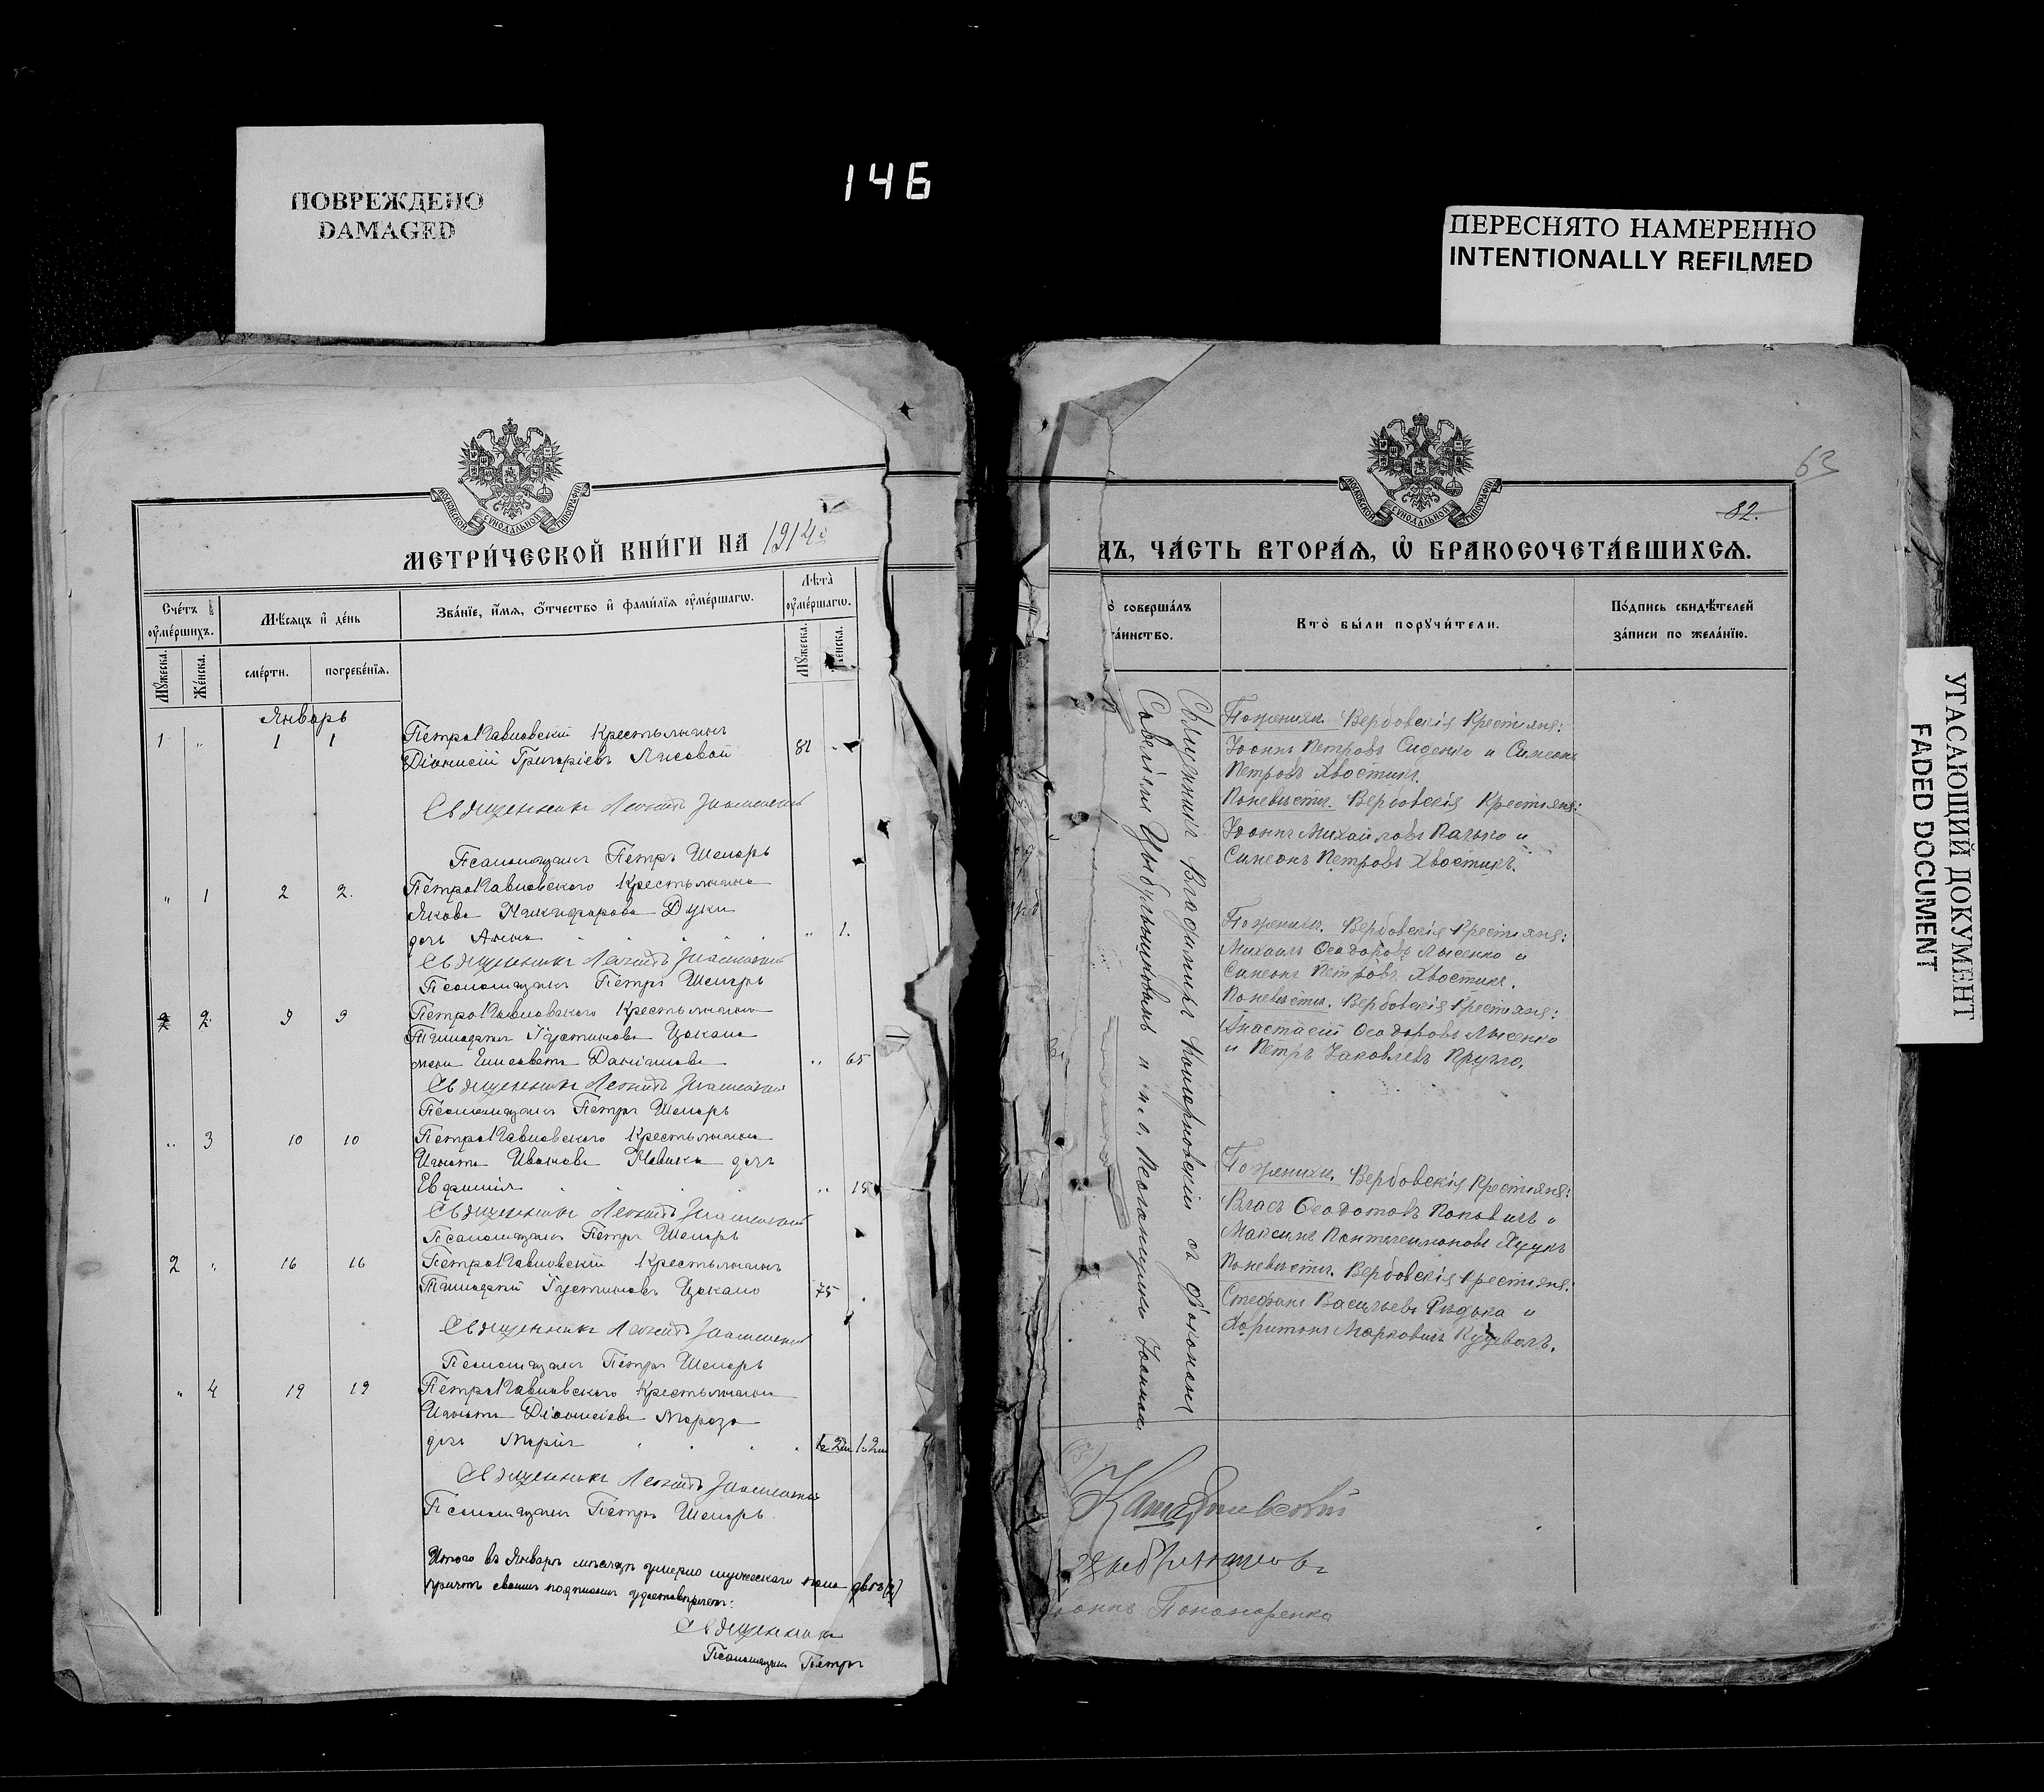 ПОВРЕЖДЕНО
DAMAGED
146
ПЕРЕСНЯТО НАМЕРЕННО
INTENTIONALLY REFILMED
УГАСАЮЩИЙ ДОКУМЕНТ
FADED DOCUMENT
МОСКОВСКОЙ СѴНОДАЛЬНОЙ ТИПОГРАФІИ
МЕТРИ́ЧЕСКОЙ КНИ́ГИ НА 1914
Сче́тъ оумершихъ.
Мѣсяцъ и де́нь
Зва́нїе, и́мя, ѻ́тчество и фами́лїя оуме́ршагѡ.
Лѣта̀ оуме́ршагѡ.
Мꙋ́жеска.
Же́нска.
сме́рти.
погребе́нїя.
Мꙋ́жеска.
Январь
1 " 1 1 Петропавловский Крестьянинъ 81
Діонисій Григоріевъ Лисовой
Священникъ Леонидъ
Псаломщикъ Петръ Шепарь
" 1 2 2. Петропавловского Крестьянина
Якова Никифорова Дуки
дочь Анна " 1.
Священникъ Леонидъ
Псаломщикъ Петръ Шепарь
2. 9 9 Петропавловского Крестьянина
Тимофея Іустинова Цокало
жена Елисавета Даніилова " 65
Священникъ Леонидъ
Псаломщикъ Петръ Шепарь
" 3 10 10 Петропавловского Крестьянина
Игната Иванова дочь
Евфимія
Священникъ Леонидъ
Псаломщикъ Петръ Шепарь
2 " 16 16 Петропавловский Крестьянинъ
Тимофей Іустиновъ Цокало 75
Священникъ Леонидъ
Псаломщикъ Петръ Шепарь
" 4 19 19 Петропавловского Крестьянина
Игната Діонисіева Мороза
дочь Марія
Священникъ Леонидъ
Псаломщикъ Петръ Шепарь
Итого въ Январѣ мѣсяцѣ умерло мужескаго пола двое (2)
причтъ своими подписями удостовѣряетъ:
Священникъ
Псаломщикъ Петръ
63
82.
МОСКОВСКОЙ СѴНОДАЛЬНОЙ ТИПОГРАФІИ
ДЪ, ЧА́СТЬ ВТОРА́Я, Ѡ БРАКОСОЧЕТА́ВШИХСЯ.
соверша́лъ
та́инство.
Кто̀ бы́ли порꙋчи́тели.
По́дпись свидѣ́телей
за́писи по жела́нїю.
Священникъ Владимиръ съ діакономъ
Савеліемъ и и. о. псаломщика Іоанномъ
По женихѣ. Вербовскія крестьяне:
Іоаннъ Петровъ Сиденко и Симеонъ
Петровъ Хвостикъ.
По невѣстѣ. Вербовскія Крестьяне:
Іоаннъ Михайловъ Палько и
Симеонъ Петровъ Хвостикъ.
По женихѣ. Вербовскія крестьяне:
Михаилъ Ѳеодоровъ Лысенко и
Симеонъ Петровъ Хвостикъ.
По невѣстѣ. Вербовскія крестьяне:
Анастасій Ѳеодоровъ Лысенко
и Петръ Іаковлевъ Кругло.
По женихѣ. Вербовскія крестьяне:
Власъ Ѳеодотовъ Поповичъ и
Максимъ Пантелеимоновъ
По невѣстѣ. Вербовскія крестьяне:
Стефанъ Васильевъ Рѣдька и
Харитонъ Марковичъ
Іоаннъ Пономаренко